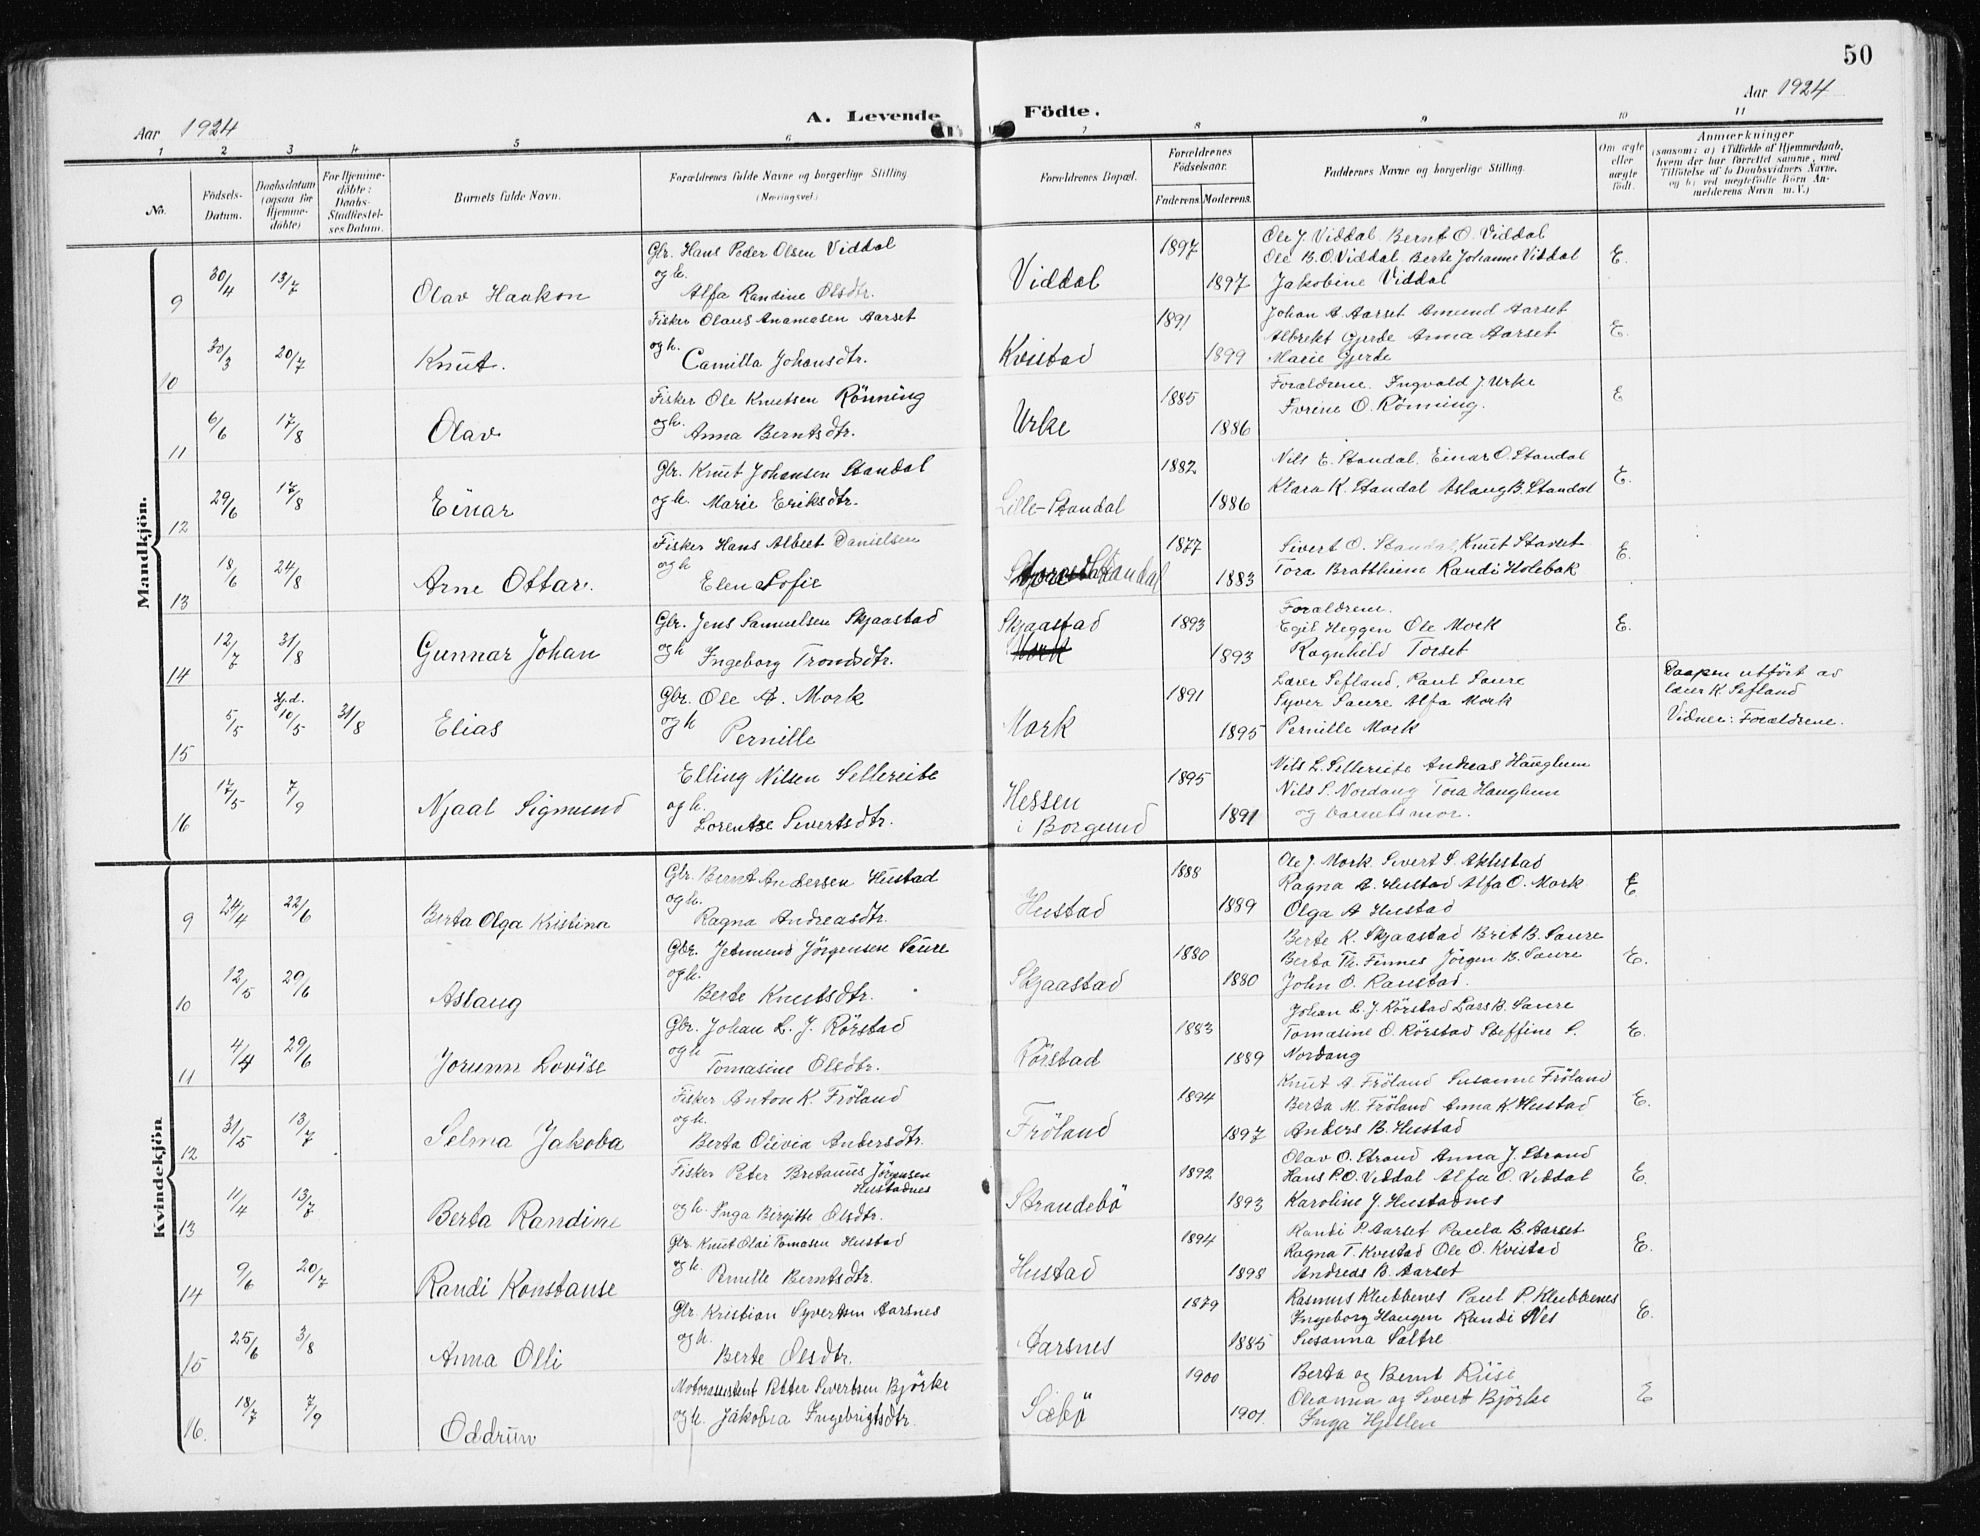 50
Aar 1924
A. Levende Födte.
Aar 1924
1 2 3 4 5 6 7 8 9 10 11
No.
Födsels-Datum.
Daabsdatum (ogsaa for Hjemmedöbte)
For Hjemmedöbte: Daabs-Stadfæstelses Datum.
Barnets fulde Navn.
Forældrenes fulde Navne og borgerlige Stilling (Næringsvei)
Forældrenes Bopæl.
Forældrenes Födselsaar.
Faderens. Moderens.
Faddernes Navne og borgerlige Stilling.
Om ægte eller uægte födt.
Anmærkninger
(saasom: a) i Tilfælde af Hjemmedaab, hvem der har forrettet samme, med Tilföielse af to Daabsvidners Navne, og b) ved uegtefödte Börn Anmelderens Navn m. V.)
Mandkjön.
9 30/4 13/7 Olav Haakon
Glr. Hans Peder Olsen Viddal
og h. Alfa Randine Olsdtr.
Viddal 1897 1897
Ole J. Viddal. Bernt O. Viddal
Ole B. O. Viddal. Berte Johanne Viddal
Jakobine Viddal
E.
10 30/3 20/7 Knut.
Fisker Olaus Ananiasen Aarset
og h. Camilla Johansdtr.
Kvistad 1891 1899
Johan A. Aarset Amund Aarset
Albrekt Gjerde Anna Aarset
Marie Gjerde
E.
11 6/6 17/8 Olav
Fisker Ole Knutsen Rönning
og h. Anna Berntsdtr.
Urke 1885 1886
Forældrene. Ingvald J. Urke
O. Rönning.
E
12 29/6 17/8 Einar
Glr. Knut Johansen Standal
og h. Marie Eriksdtr.
Lille-Standal 1882 1886
Nils E. Standal. Einar O. Standal
Klara K. Standal Aslaug B. Standal
E.
13 18/6 24/8 Arne Ottar.
Fisker Hans Albert Danielsen
og h Elen Sofie
Standal 1877 1883
Sivert O. Standal, Knut Stavset
Tora Brattheim Randi Holebak
E.
14 12/7 31/8 Gunnar Johan
Glr. Jens Samuelsen Skjaastad
og h Ingeborg Trondsdtr.
Skjaastad
Mork
1893 1893
Forældrene.
Egil Heggen Ole Mork
Ragnhild Torset
E.
15 5/5 Hj.d. 10/5 31/8 Elias
Gbr. Ole A. Mork
og h Pernille
Mork 1891 1895
Lærer Sefland, Paul Saure
Syver Saure Alfa Mork
Pernille Mork
Daapen utfört av
lærer K Sefland
Vidner: Forældrene.
16 17/5 7/9 Njaal Sigmund
Elling Nilsen Sellereite
og h. Lorentse Sivertsdtr.
Hessen
i Borgund
1895 1891
Nils L. Sellereite Andreas Hauglum
Nils S. Nordang Tora Hauglum
og barnets mor.
Kvindekjön
9 24/4 22/6 Berta Olga Kristina
Glr. Bernt Andersen Hustad
og h. Ragna Andreasdtr.
Hustad 1888 1889
Ole J. Mork Sivert S. Aklestad
Ragna A. Hustad Alfa O. Mork
Olga A Hustad
E
10 12/5 29/6 Aslaug
Gbr. Jetmund Jörgensen Saure
og h. Berte Knutsdtr.
Skjaastad 1880 1880
Berte K. Skjaastad Brit B. Saure
Berta Th. Finnes Jörgen B. Saure
John O. Ramstad.
E.
11 4/4 29/6 Jorunn Lovise
Glr. Johan L. J. Rörstad
og h Tomasine Olsdtr.
Rörstad 1883 1889
Johan L. J. Rörstad Lars B. Saure
Tomasine O. Rörstad Steffine S.
Nordang
E.
12 31/5 13/7 Selma Jakoba
Fisker Anton K. Fröland
og h. Berta Olivia Andersdtr.
Fröland 1894 1897
Knut A. Fröland Susanne Fröland
Berta M. Fröland Anna K. Hustad
Anders B. Hustad
E.
13 11/4 13/7 Berta Randine
Fisker Peter Bretanus Jörgensen
Hustadnes
og h. Inga Birgitte Olsdtr.
Strandebö 1892 1893
Olav O. Strand Anna J. Strand
Hans P.O. Viddal Alfa O. Viddal
Karoline J. Hustadnes
E.
14 9/6 20/7 Randi Konstanse
Glr Knut Olai Tomasen Hustad
og h. Pernille Berntsdtr.
Hustad 1894 1898
Randi P. Aarset Paula B. Aarset
Ragna T. Kvistad Ole O. Kvistad
Andreas B. Aarset
E.
15 25/6 3/8 Anna Olli
Glr. Kristian Syvertsen Aarsnes
og h. Berte Olsdtr.
Aarsnes 1879 1885
Rasmus Klubbenes Paul P. Klubbenes
Ingeborg Haugen Randi Nes
Susanna Sætre
E.
16. 18/7 7/9 Oddrun
Motorassistent Petter Sivertsen Björke
og h. Jakobia Ingebrigtsdtr.
Sæbö 1900 1901.
Berta og Bernt Riise
Oleanna og Sivert Björke
Inga Hjellen
E